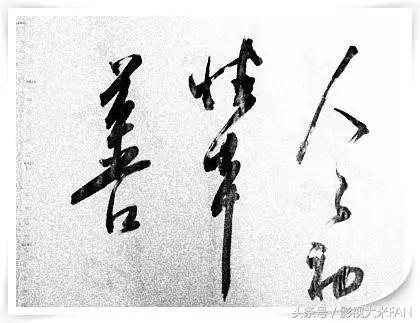 人之初
性本
善
头条号 / 影视大米FAN